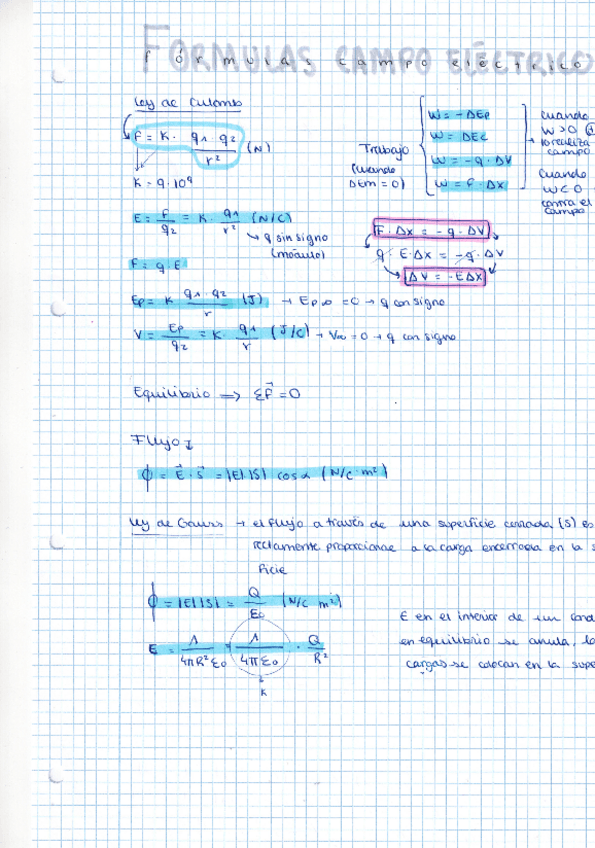 FÓRMULAS CAMPO ELÉCTRICO
fórmulas campo eléctrico
Ley de Culomb
F = K · q1 · q2 / r² (N)
K = 9·10⁹
Trabajo
(cuando
ΔEm = 0)
W = -ΔEp
W = ΔEc
W = -q · ΔV
W = F · Δx
cuando
W > 0
lo realiza
campo
cuando
W < 0
contra el
campo
E = F / q2 = K · q1 / r² (N/C)
↳ q sin signo
(módulo)
F = q · E
F · Δx = -q · ΔV
q · E · Δx = -q · ΔV
ΔV = -E Δx
Ep = K q1 · q2 / r (J) → Ep∞ = 0 → q con signo
V = Ep / q2 = K · q1 / r (J/C) → V∞ = 0 → q con signo
Equilibrio ⟹ ΣF⃗ = 0
Flujo ↓
ϕ = E⃗ · S⃗ = |E| |S| cos α (N/C · m²)
Ley de Gauss → el flujo a través de una superficie cerrada (S) es
rectamente proporcional a la carga encerrada en la s
ficie
ϕ = |E| |S| = Q / ε0 (N/C m²)
E = 1 / 4πR²ε0 = 1 / 4πε0 · Q / R²
↓
K
E en el interior de un cond
en equilibrio se anula, la
cargas se colocan en la supe